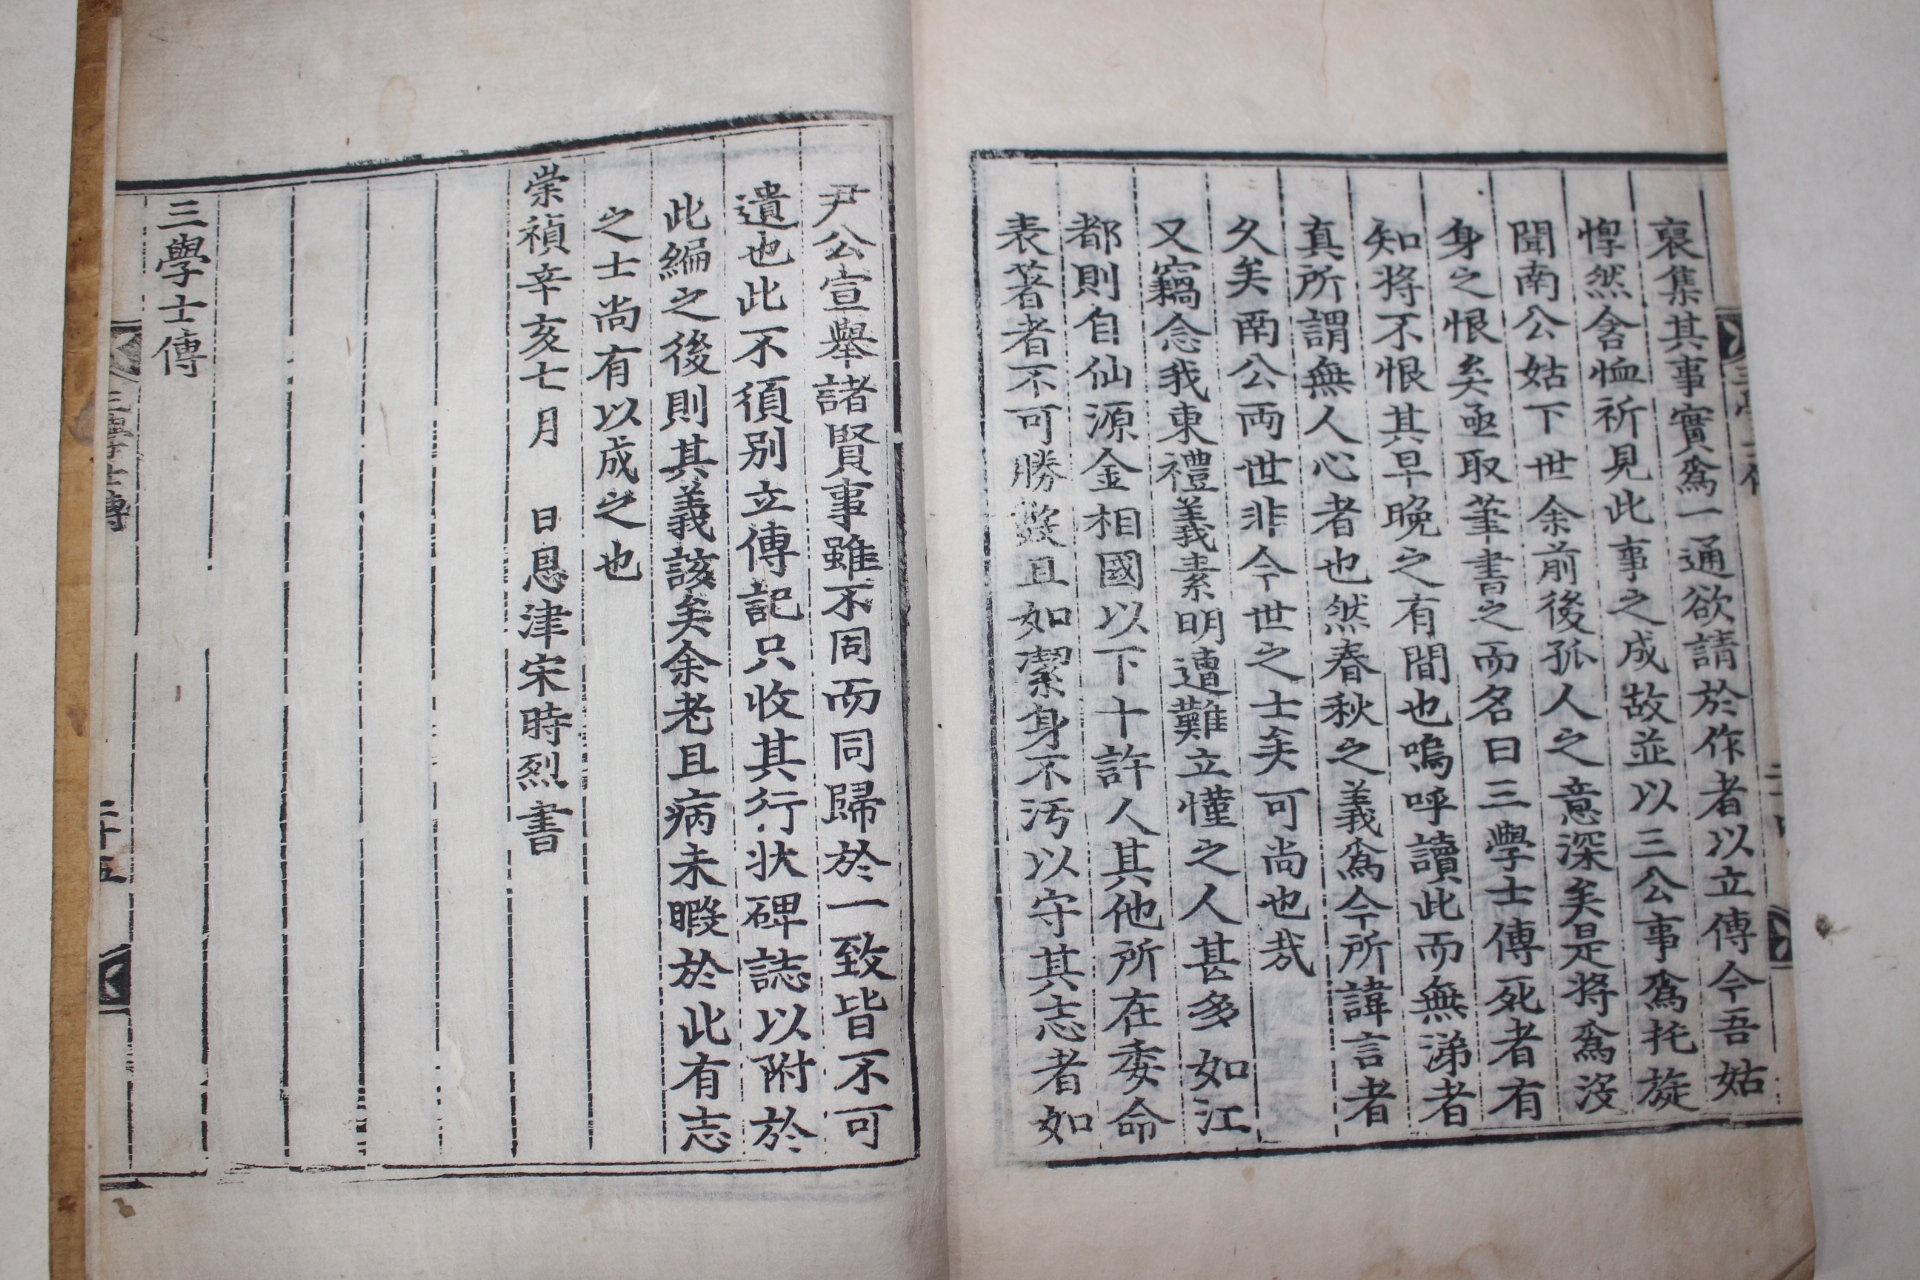 裒集其事實爲一通欲請於作者以立傳今吾姑
惸然含恤祈見此事之成故並以三公事爲托旋
聞南公姑下世余前後孤人之意深矣是將爲沒
身之恨矣亟取筆書之而名曰三學士傳死者有
知將不恨其早晚之有間也嗚呼讀此而無涕者
真所謂無人心者也然春秋之義爲今所諱言者
久矣南公兩世非今世之士矣可尚也哉
又竊念我東禮義素明遭難立慬之人甚多如江
都則自仙源金相國以下十許人其他所在委命
表著者不可勝數且如潔身不汚以守其志者如
尹公宣擧諸賢事雖不同而同歸於一致皆不可
遺也此不須別立傳記只收其行狀碑誌以附於
此編之後則其義該矣余老且病未暇於此有志
之士尚有以成之也
崇禎辛亥七月 日恩津宋時烈書
三學士傳
三學士傳
二十五